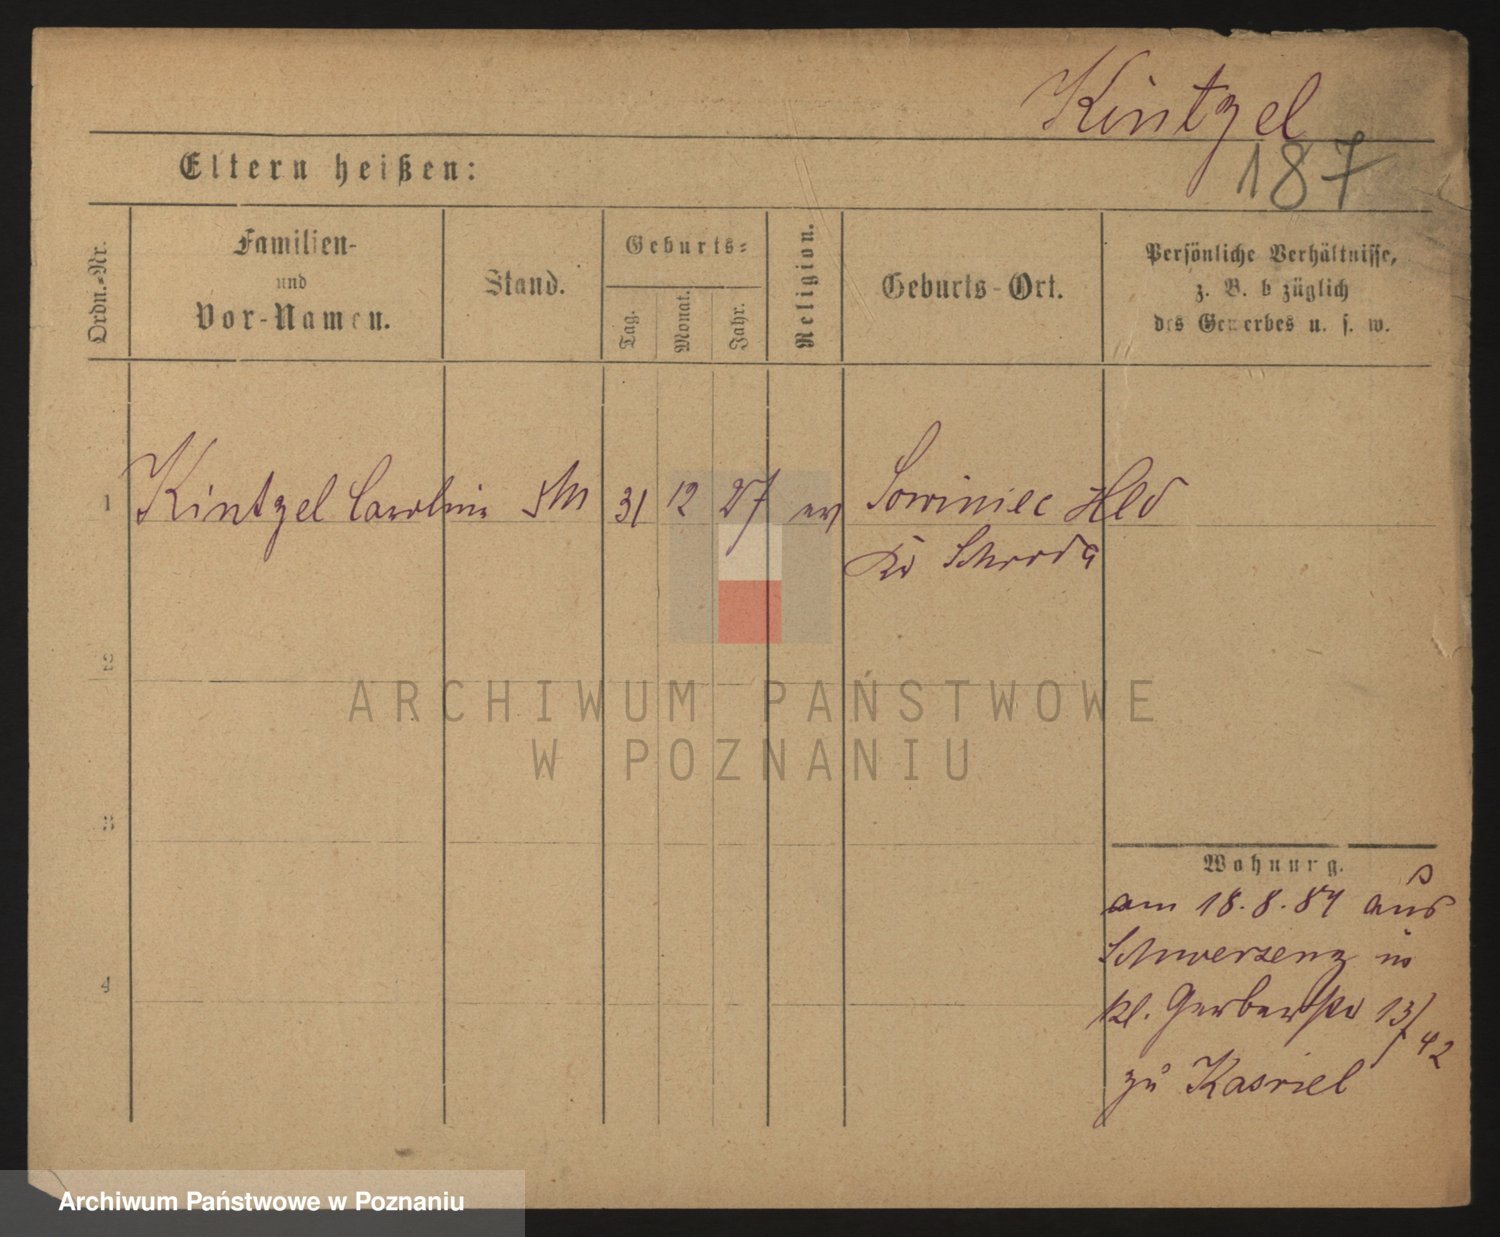 Kintzel
187
Eltern heißen:
Ordn.-Nr.
Familien-
und
Vor-Namen.
Stand.
Geburts-
Tag.
Monat.
Jahr.
Religion.
Geburts-Ort.
Persönliche Verhältnisse,
z. B. b züglich
des Gewerbes u. s. w.
1 Kintzel Caroline 31 12 27 ev Sowiniec Hld
Kr Schroda
2
3
4
Wohnung.
am 18.8.84 aus
Schwersenz in
kl. Gerberstr 13/42
zu Kasriel
ARCHIWUM PAŃSTWOWE
W POZNANIU
Archiwum Państwowe w Poznaniu